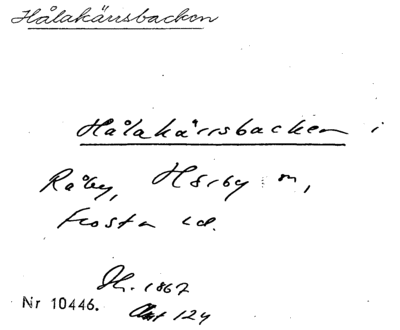 Hålakärrsbacken
Hålakärrsbacken i
Råby, Hörby sn,
Frosta hd.
Sk. 1867
Akt 124
Nr 10446.